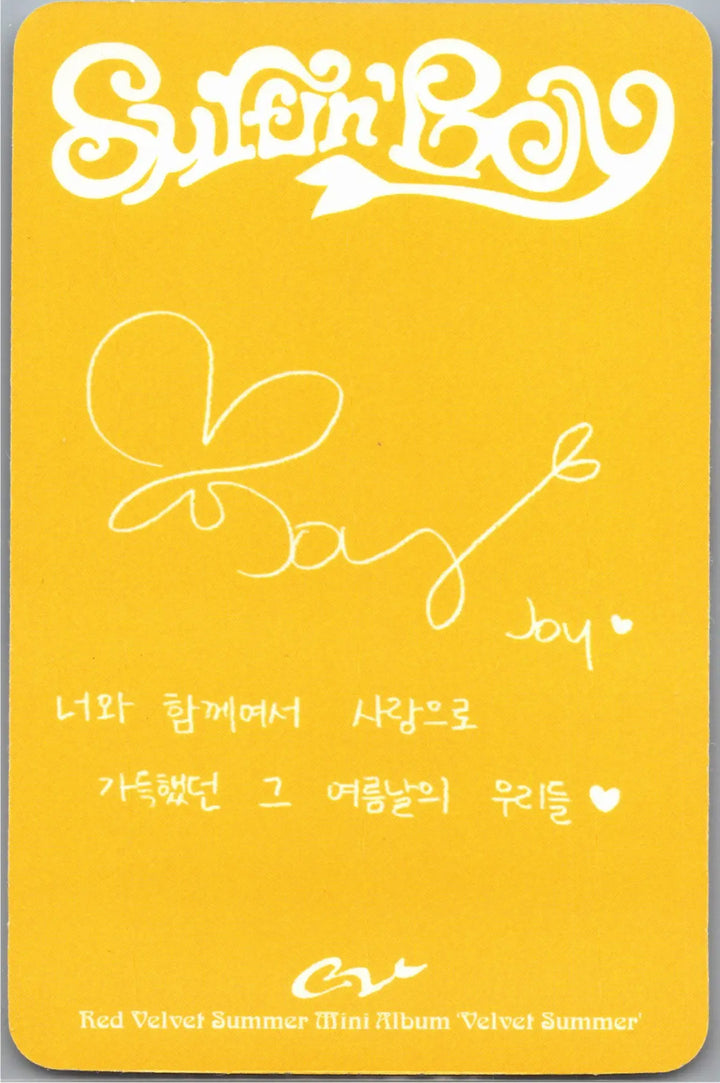 Surfin' Boy
Joy
Joy ♥
너와 함께여서 사랑으로
가득했던 그 여름날의 우리들 ♥
Red Velvet Summer Mini Album 'Velvet Summer'